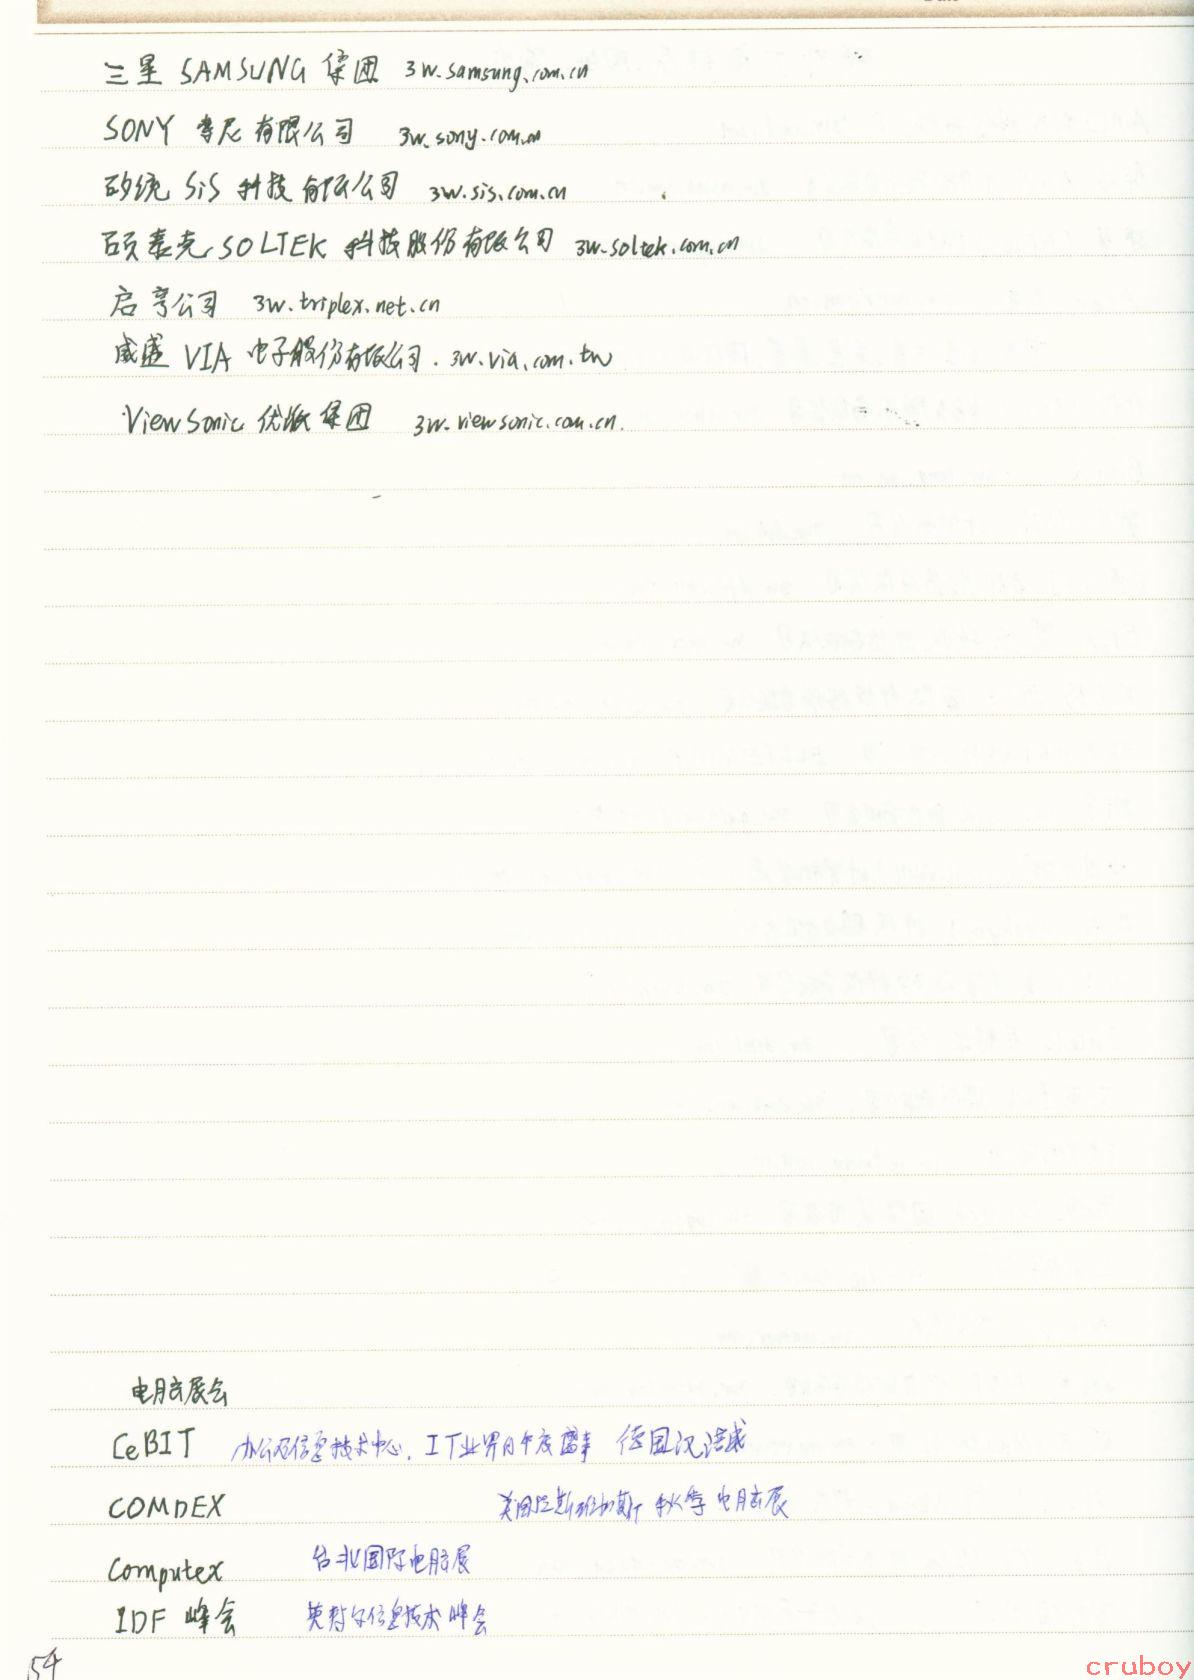 三星 SAMSUNG 集团 3w.samsung.com.cn
SONY 索尼 有限公司 3w.sony.com.cn
矽统 SiS 科技 有限公司 3w.sis.com.cn
硕泰克 SOLTEK 科技股份有限公司 3w.soltek.com.cn
启亨公司 3w.triplex.net.cn
威盛 VIA 电子股份有限公司. 3w.via.com.tw
ViewSonic 优派 集团 3w.viewsonic.com.cn.
电脑展会
CeBIT 办公及信息技术中心. IT业界的年度盛事 德国汉诺威
COMDEX 美国拉斯维加斯 秋季 电脑展
Computex 台北国际电脑展
IDF 峰会 英特尔信息技术 峰会
54
cruboy